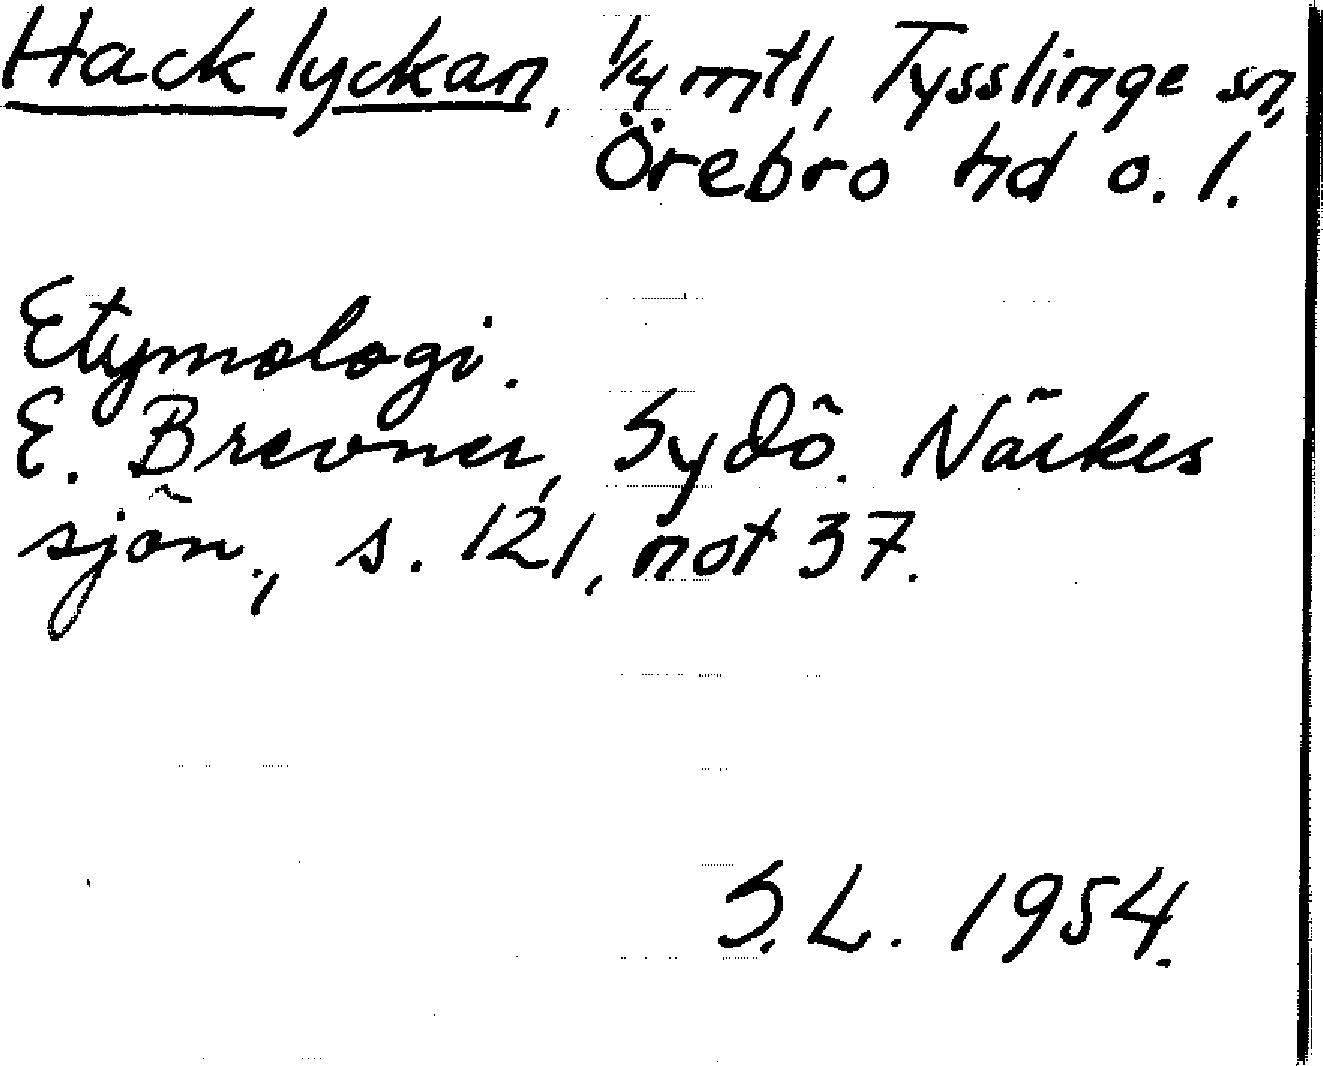 Hacklyckan, 1/4 mtl, Tysslinge sn,
Örebro hd o. l.
Etymologi.
E. Brevner, Sydö. Närkes
sjön., s. 121, not 37.
S. L. 1954.